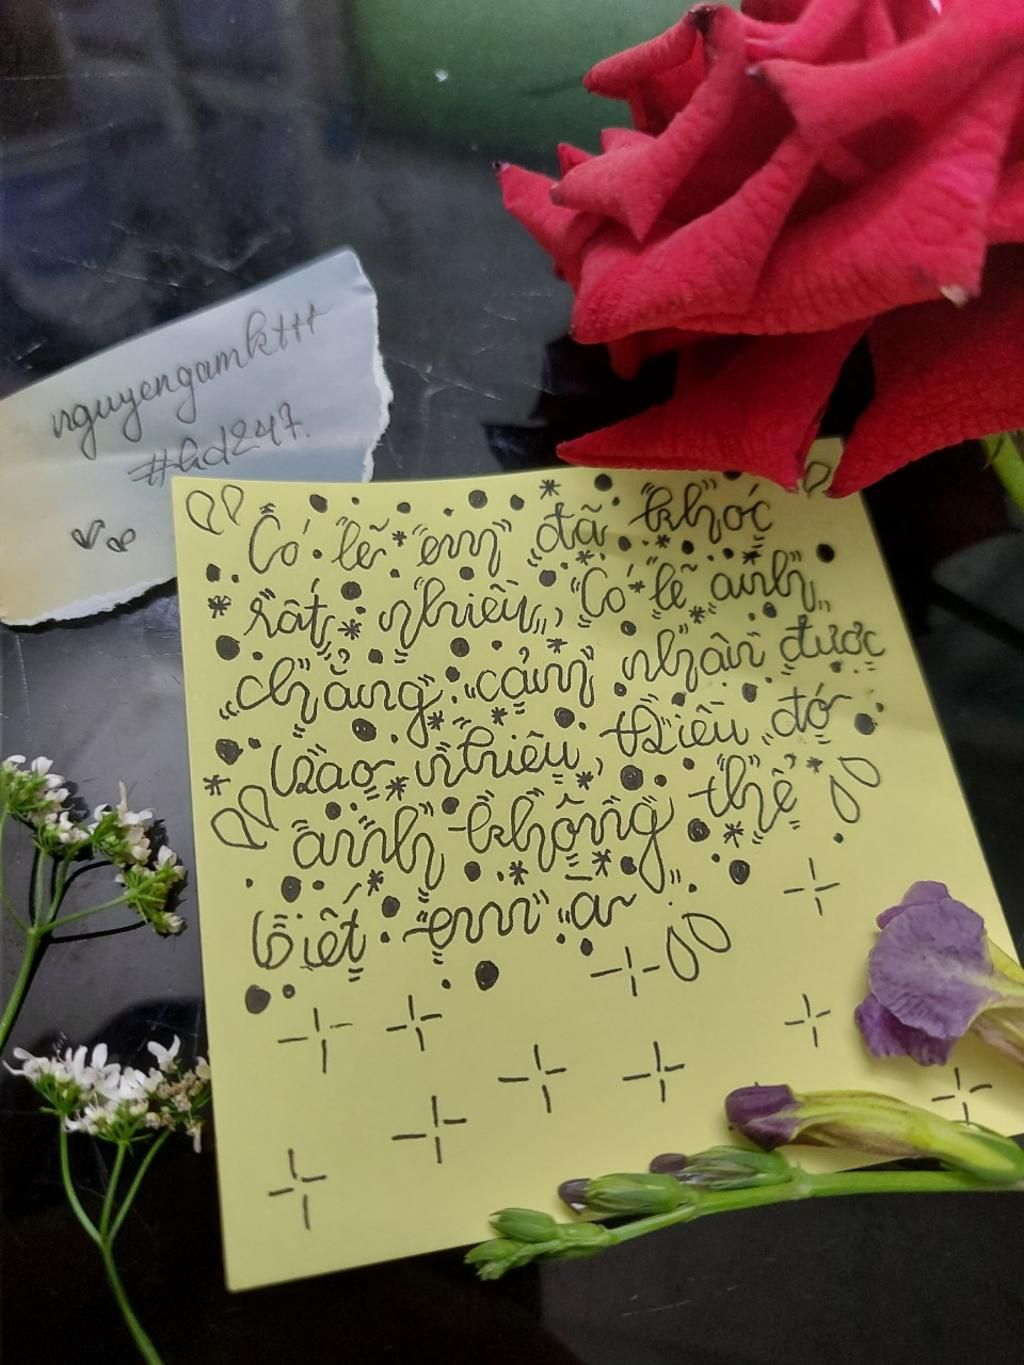 nguyengamkttt
#hd247.
Có lẽ em đã khóc
rất nhiều, Có lẽ anh
chẳng cảm nhận được
bao nhiêu, Điều đó
anh không thể
biết em ạ